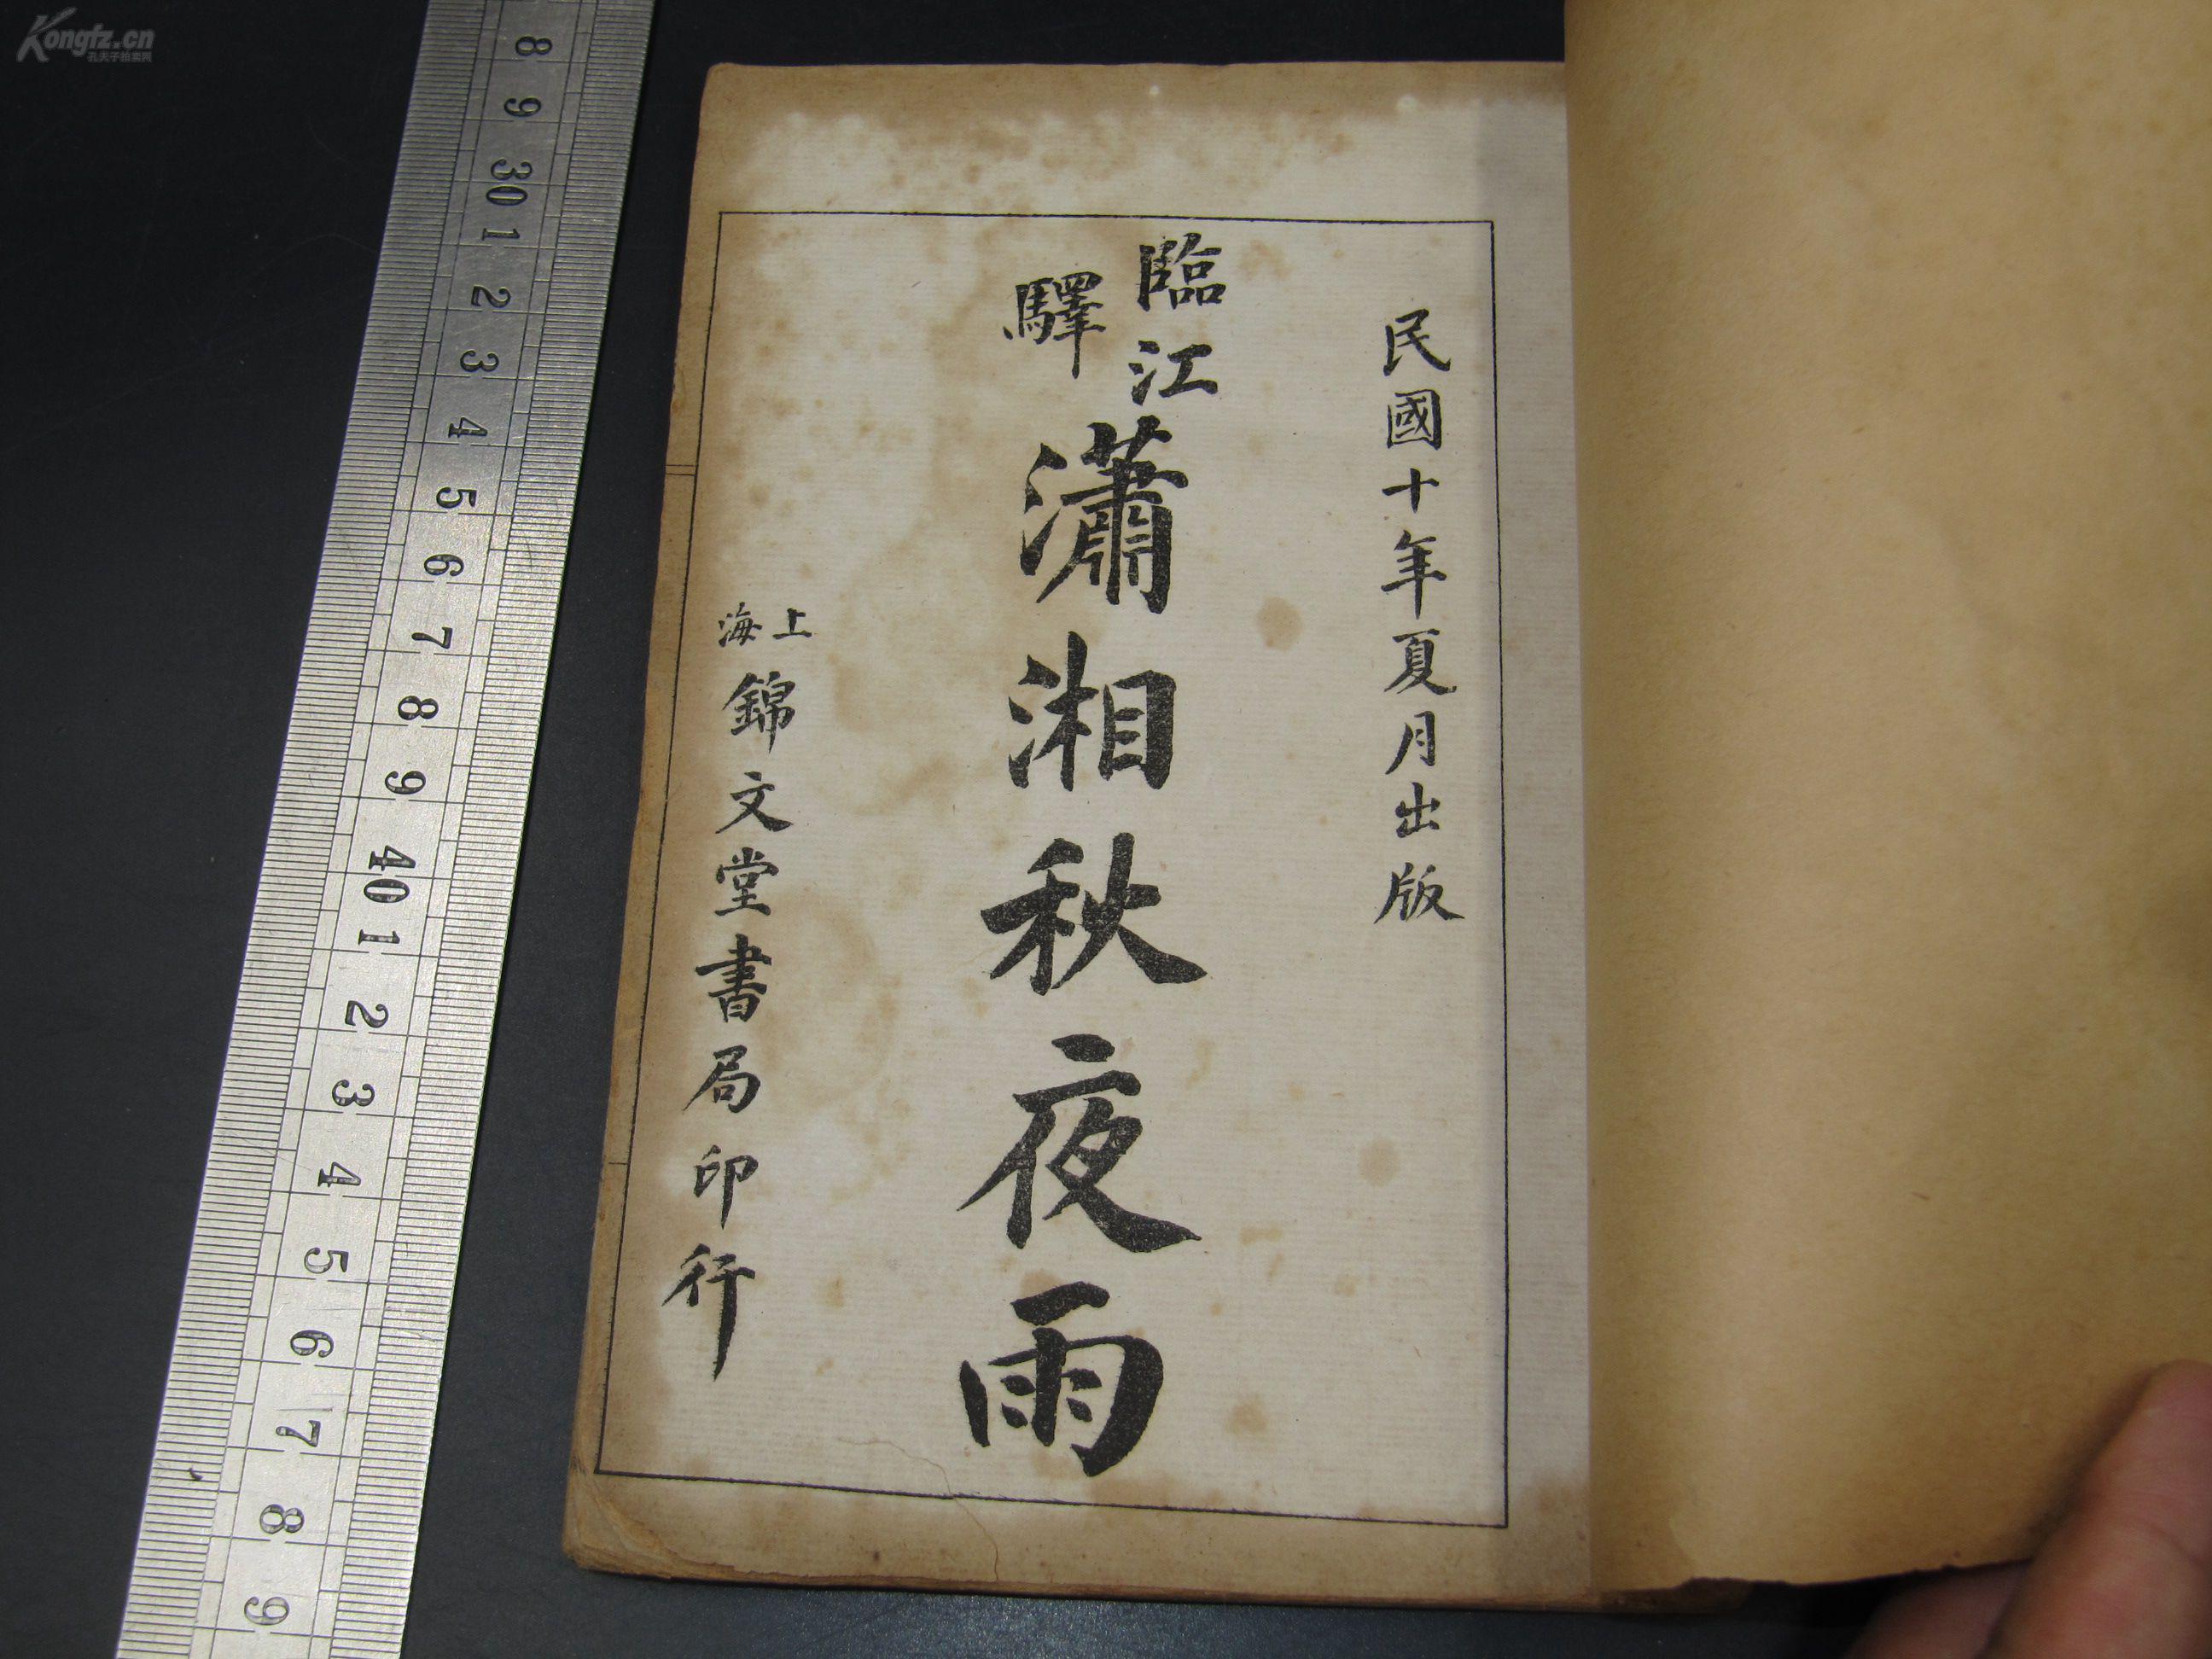 民國十年夏月出版
臨江驛
瀟湘秋夜雨
上海
錦文堂書局印行
Kongfz.cn
孔夫子拍卖网
8 9 30 1 2 3 4 5 6 7 8 9 40 1 2 3 4 5 6 7 8 9